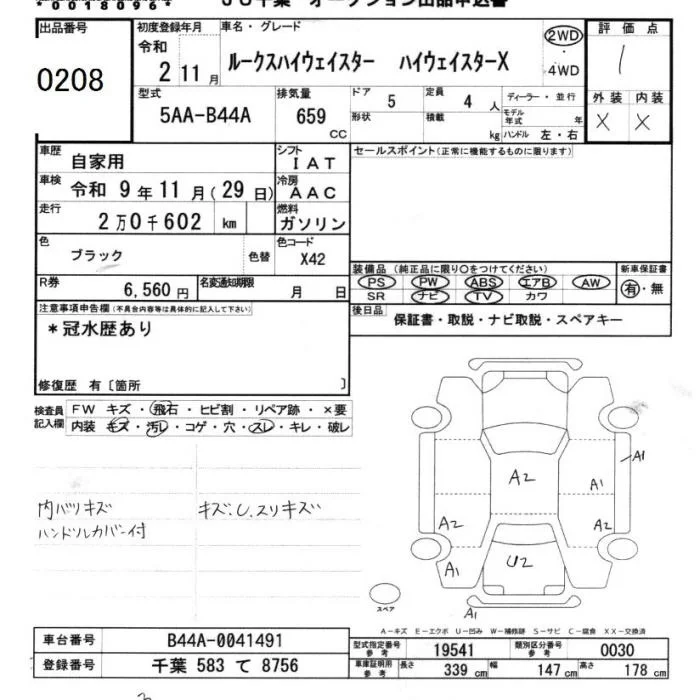 *00180964*
JU千葉 オークション出品申込書
出品番号
0208
初度登録年月
令和
2 11月
車名・グレード
ルークスハイウェイスター ハイウェイスターX
2WD
・
4WD
評価点
1
外装 内装
X X
型式
5AA-B44A
排気量
659
CC
ドア 5
定員 4 人
形状
積載 kg
ディーラー・並行
モデル年式 年
ハンドル 左・右
車歴 自家用
シフト IAT
車検 令和 9年11月(29日)
冷房 AAC
走行 2万0千602 km
燃料 ガソリン
色 ブラック 色替
色コード X42
R券 6,560円
名変通知期限 月 日
セールスポイント(正常に機能するものに限ります)
装備品(純正品に限り○をつけてください)
PS PW ABS エアB AW
SR ナビ TV カワ
新車保証書
有・無
後日品 保証書・取説・ナビ取説・スペアキー
注意事項申告欄(不具合内容等は具体的に記入して下さい)
*冠水歴あり
修復歴 有〔箇所 〕
検査員記入欄
FW キズ・飛石・ヒビ割・リペア跡・×要
内装 キズ・汚レ・コゲ・穴・スレ・キレ・破レ
内バリキズ キズ.U.スリキズ
ハンドルカバー付
A1
A2
A1
A2
A2
U2
A1
A1
スペア
A-キズ E-エクボ U-凹み W-補修跡 S-サビ C-腐食 XX-交換済
車台番号 B44A-0041491
登録番号 千葉 583 て 8756
型式指定番号 参考 19541
類別区分番号 参考 0030
車庫証明用 参考 長さ 339 cm 幅 147 cm 高さ 178 cm